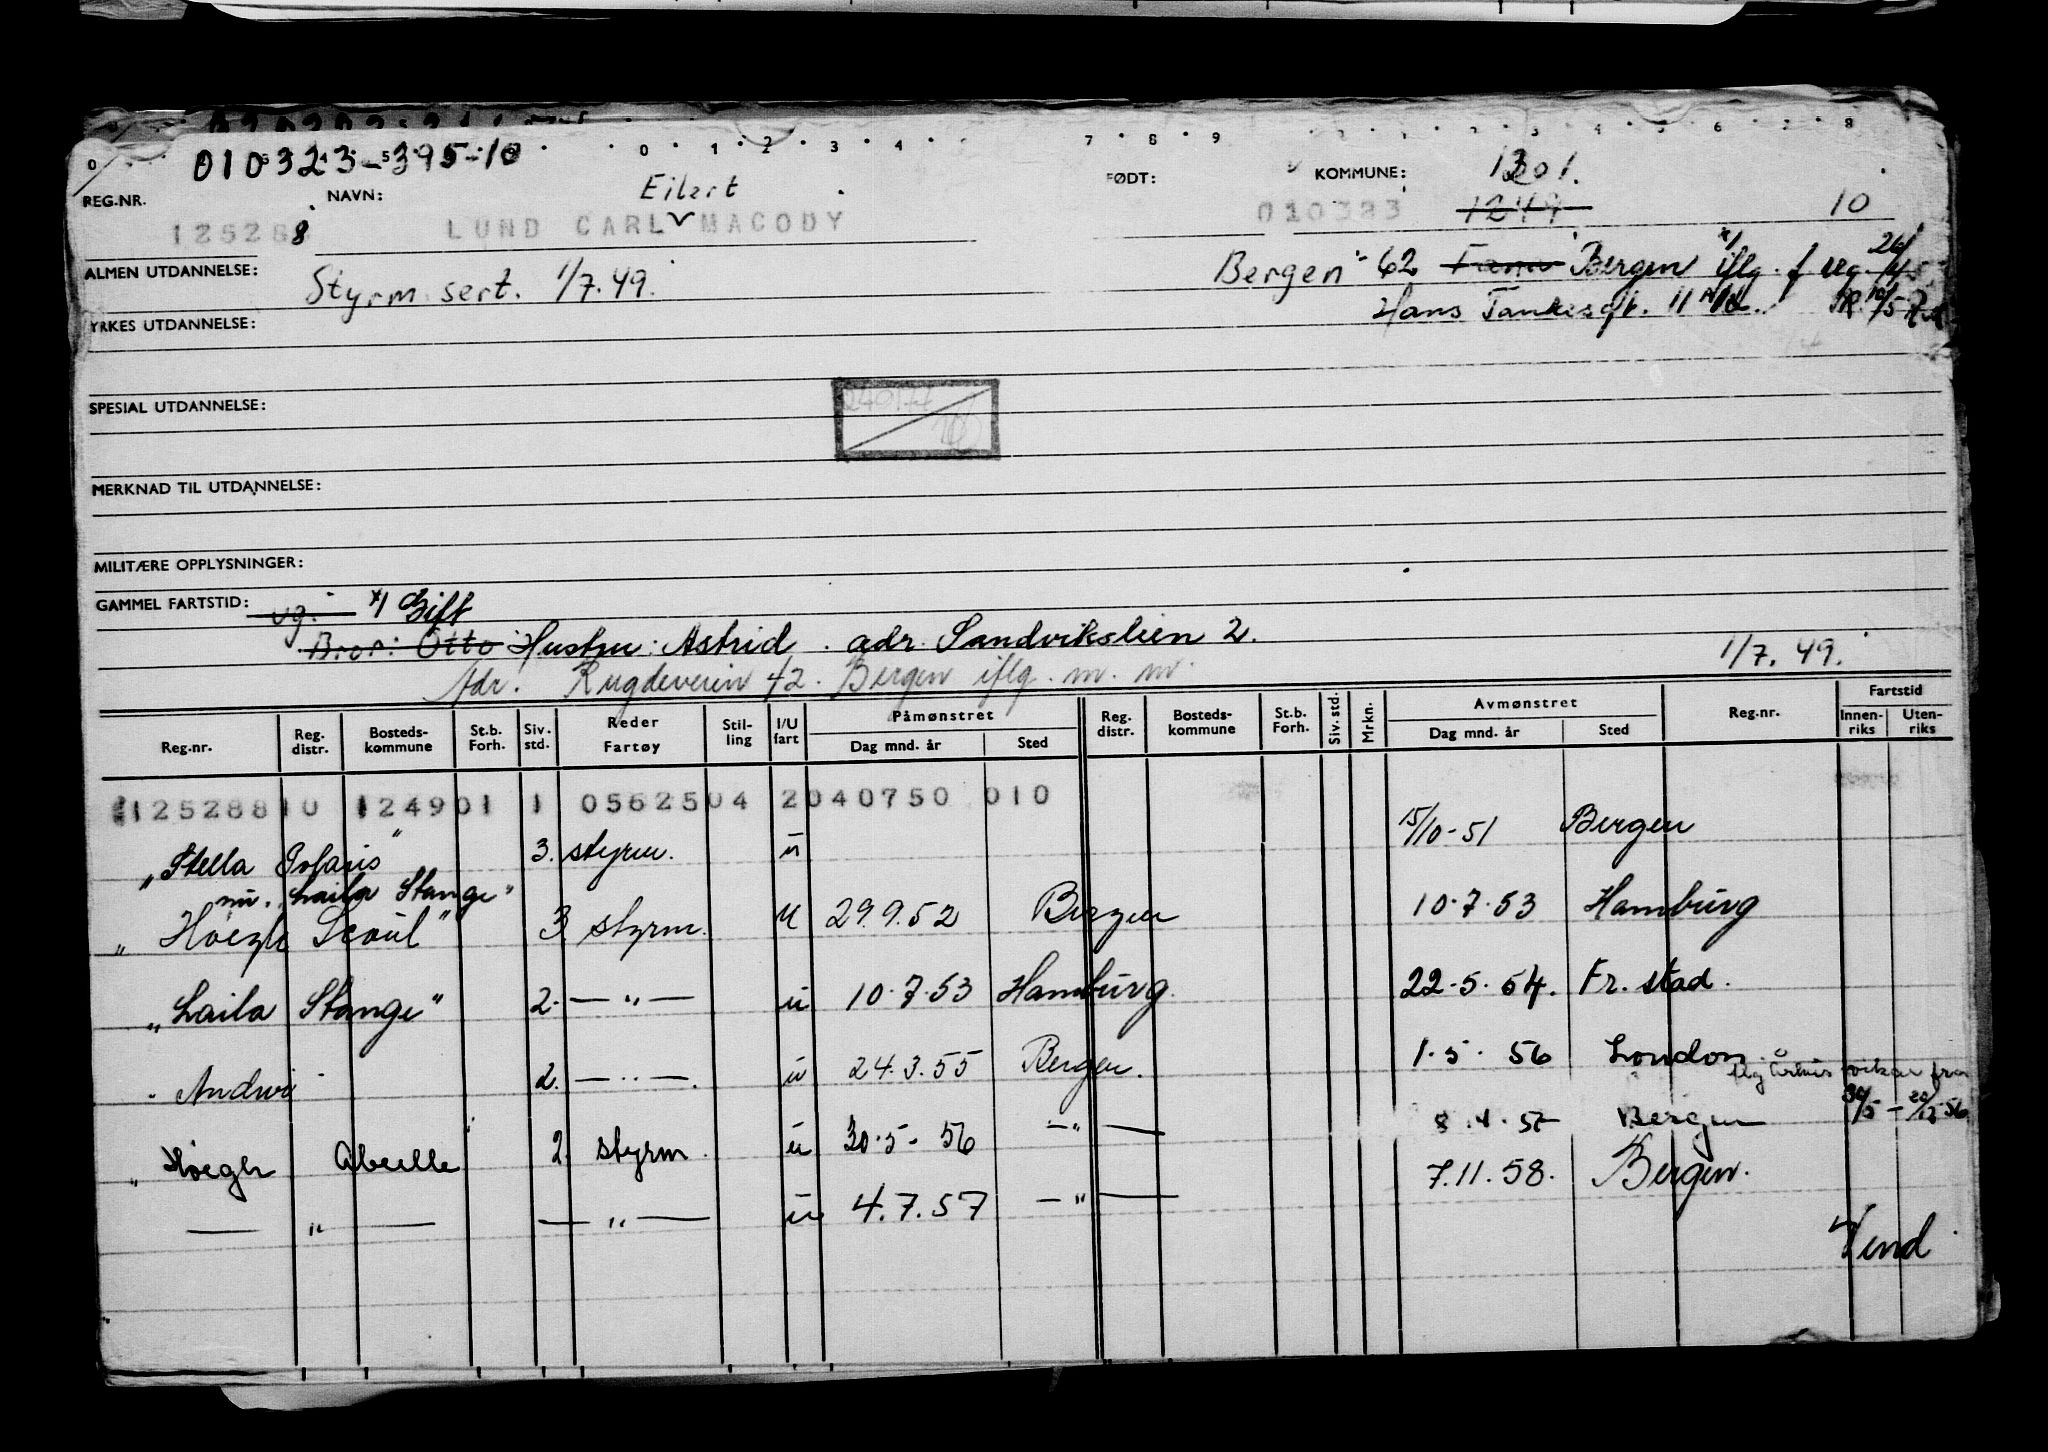 010323-395-10
REG.NR. NAVN: Eilert FØDT: KOMMUNE: 1301.
125288 LUND CARL MACODY 010323 1249 10
ALMEN UTDANNELSE: Styrm. sert. 1/7.49. Bergen 62 Fana Bergen iflg. f reg. 26/4
YRKES UTDANNELSE: Hans Tanksgt. 11
SPESIAL UTDANNELSE:
MERKNAD TIL UTDANNELSE:
MILITÆRE OPPLYSNINGER:
GAMMEL FARTSTID: ug. x/ Gift
Bror: Otto Hustru: Astrid. adr. Sandvikslien 2.
Adr. Rugdeveien 42. Bergen iflg. m. m. 1/7.49.
Reg.nr. Reg. distr. Bosteds-kommune St.b. Forh. Siv. std. Reder Fartøy Stil-ling I/U fart Påmønstret Dag mnd. år Sted Reg. distr. Bosteds-kommune St.b. Forh. Siv. std. Mrkn. Avmønstret Dag mnd. år Sted Reg.nr. Fartstid Innen-riks Uten-riks
12528810 124901 1 0562504 2040750 010
"Stella Polaris" 3. styrm. u 15/10-51 Bergen
nu. "Laila Stange"
" Høegh Scout" 3. styrm. u 29.9.52 Bergen 10.7.53 Hamburg
"Laila Stange" 2. — " — u 10.7.53 Hamburg 22.5.54. Fr.stad.
" Andwi 2. — " — u 24.3.55 Bergen. 1.5.56 London.
vikar fra 30/5 - 20/12 56
" Høegh Abeille 2. styrm. u 30.5-56 — " — 8.4.57 Bergen
— " — — " — u 4.7.57 — " — 7.11.58. Bergen.
Vend